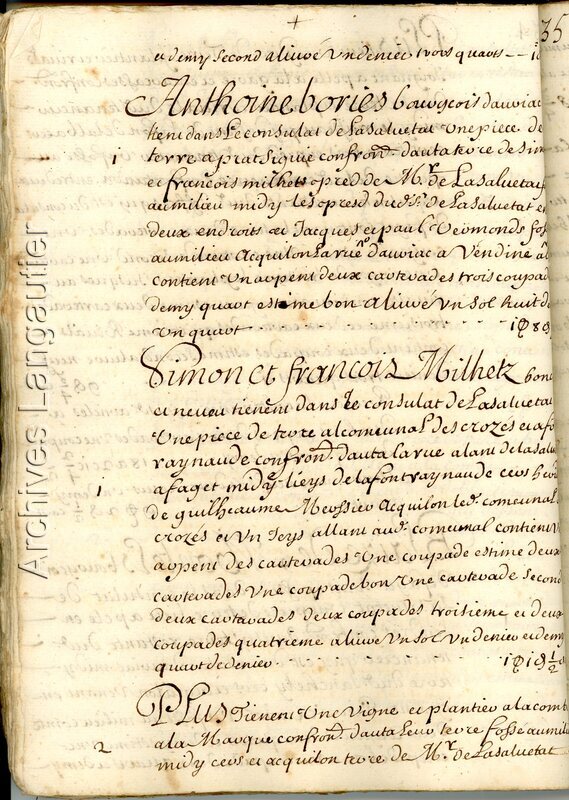 +
35
et demy second aliuré un denier trois quarts
Anthoine bories bourgeois dauriac
tient dans Le consulat de Lasaluetat une piece de
1
terre a prat Siguie confron.t dauta terre de Sim
et françois milhets opred de M.r de Lasaluetat
aumilieu midy les opresd dud.s de Lasaluetat en
deux endroits et Jacques et paul Reimonds foss
aumilieu Acquilon La rue dauriac a Vendine
contient un arpent deux carterades trois coupad
demy quart estime bon aliuré un sol huit d
un quart
Simon et francois Milhetz
et neueu tienent dans le consulat de Lasaluetat
une piece de terre al comunal des crozes et a fo
raynaude confron.t dauta La rue alant de la salu
1
a faget midy lieys de lafont raynaude cers
de guilheaume Meossier Acquilon led. comunal
crozes et un ieys allant aud. comunal contient
arpent des carterades une coupade estime deux
carterades une coupade bon une carterade second
deux carterades deux coupades troisieme et deux
coupades quatrieme aliuré un sol un denier et demy
quart de denier
PLus Tienent une vigne et plantier a la comb
2
ala Marque confron.t dauta Leur terre fossé aumilieu
midy cers et acquilon terre de M.r de Lasaluetat
Archives Langautier